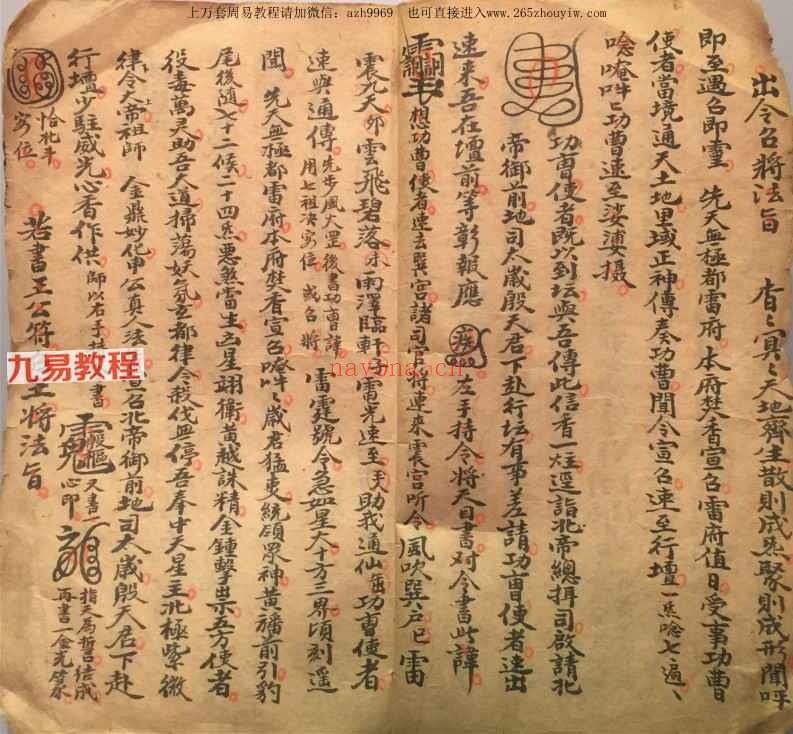 上万套周易教程请加微信：azh9969 也可直接进入www.265zhouyiw.com
出令召将法旨 杳々冥々天地齊生散則成炁聚則成形聞呼
即至遇召即靈 先天無極都雷府本府焚香宣召雷府值日受事功曹
使者當境通天土地里域正神傳奏功曹聞令宣召速至行壇一炁唸七遍
唸唵吽吽功曹速至娑婆摄
功曹使者既以到坛與吾傳此信香一炷逕詣北帝總摄司啟請北
帝御前地司太歲殷天君下赴行坛有事差請功曹使者速出
速來吾在壇前等彰報應 左手持令将天目書对令書此諱
想功曹使者速去巽宫諸司官将速來震宫听令 風吹巽户巳雷
震九天卯雲飛碧落未雨澤臨軒子雷光速至午助我通仙 功曹使者
速與通傳 先步風火罡後書功曹諱
用七祖决 位或召将 雷霆號令急如星火十方三界頃刻遥
聞 先天無極都雷府本府焚香宣召 歲君猛吏統領眾神黄旛前引豹
尾後随七十二候二十四炁惡煞雷 凶星翊衛黄越誅精金鍾擊祟五方使者
役毒萬天助吾人道掃蕩妖氛玄都律令殺伐無停吾奉中天星主北極紫微
律令大帝祖師 金鼎妙化申公真人法 召北帝御前地司太歲殷天君下赴
行壇少駐威光心香作供 師以右手持 書
天書一
心即
指天為誓 结成
再書一金光
若書王公符 王将法旨
九易教程
naybna.cn